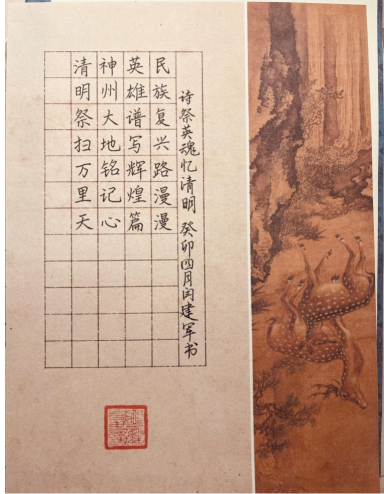 清明祭扫万里天
神州大地铭记心
英雄谱写辉煌篇
民族复兴路漫漫
诗祭英魂忆清明 癸卯四月闫建军书